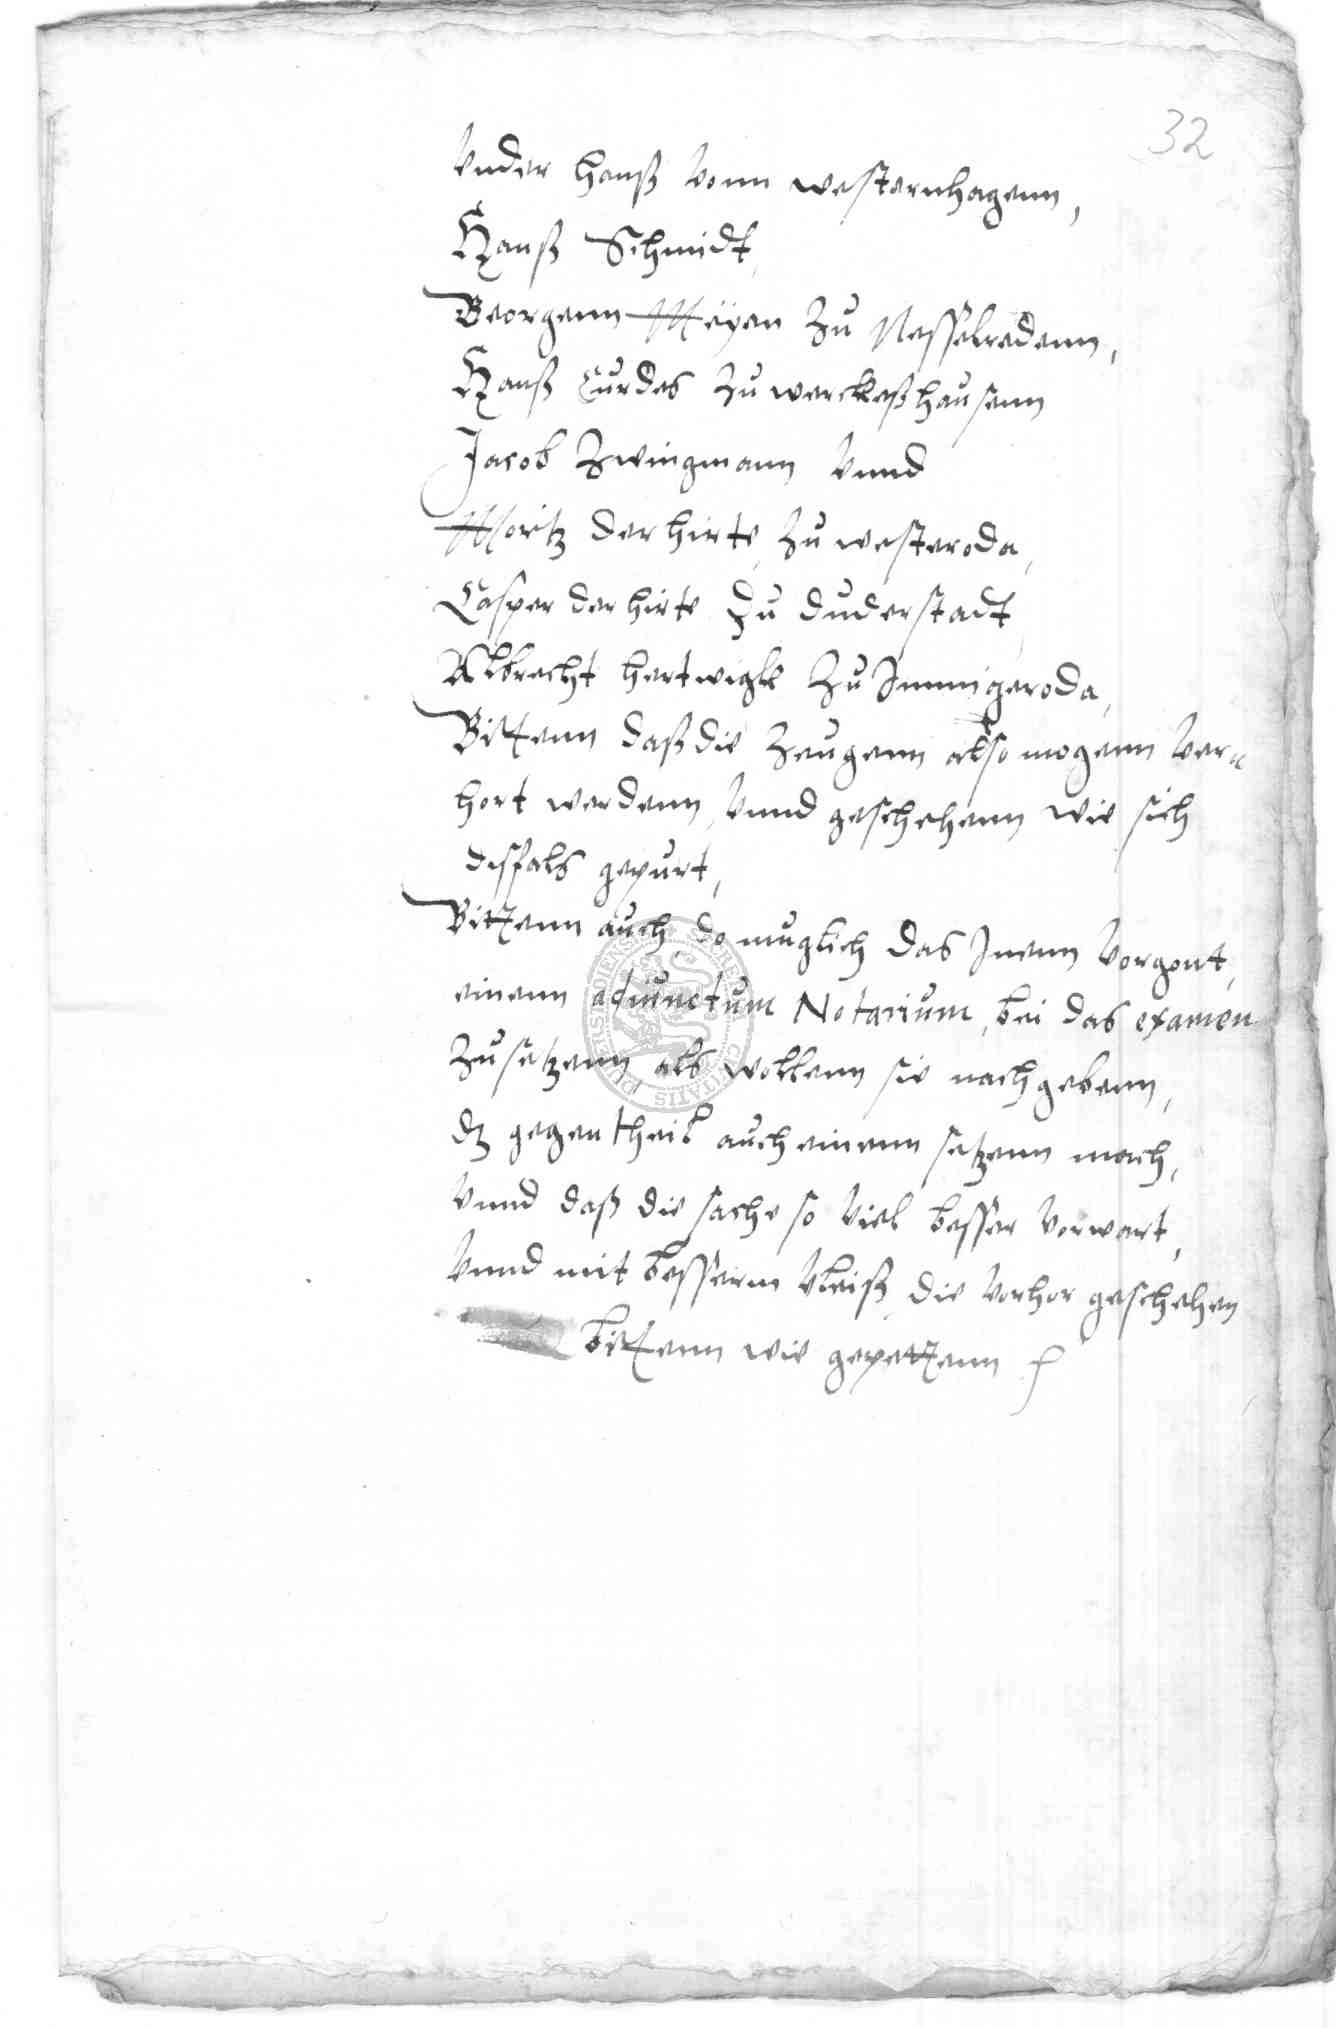 32
Vnder hanß vonn westernhagenn,
Hanß Schmidt,
Georgenn Meyen Zu Nesselredenn,
Hanß Curdes Zu werckeßhausenn
Jacob Zwingmann Vnnd
Moritz der hirte, Zu westeroda,
Casper der hirte Zu duderstadt,
Albrecht hertwigk Zu Immigeroda,
Bittenn daß die Zeugenn also mogenn ver=
hort werdenn, Vnnd geschehenn wie sich
disfals gepurt,
Bittenn auch do muglich das Inenn vorgont,
einenn adiunctum Notarium, bei das examen
Zusetzenn als wollenn sie nachgebenn,
dz gegentheil auch einenn setzenn moch,
Vnnd daß die sache so viel besser vorwart,
Vnnd mit besserm vleiß die vorhor geschehen
bittenn wie gepettenn
SIGILLUM SECRETUM CIVITATIS DUDERSTADIENSIS